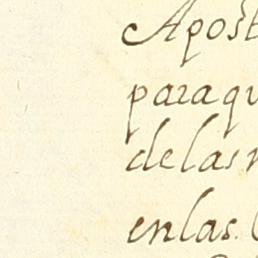 Apost
paraqu
delas
enlas